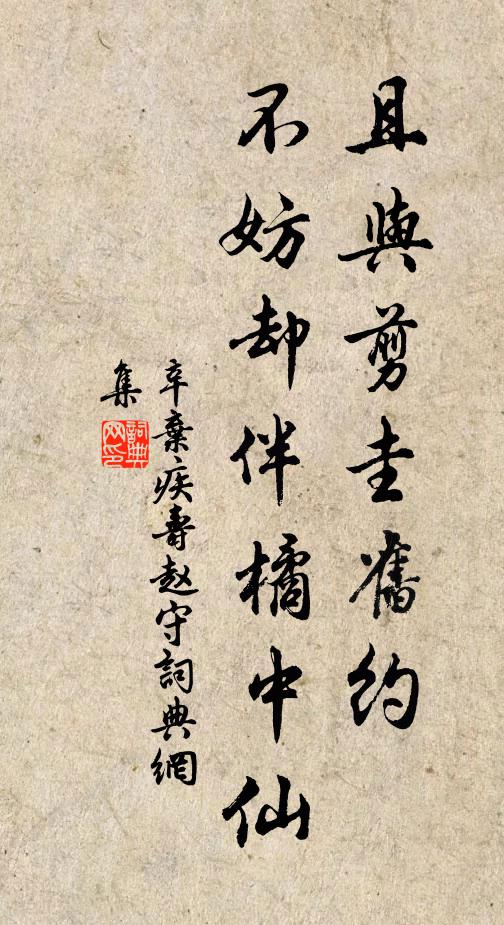 且與剪圭舊約
不妨却伴橘中仙
辛棄疾壽赵守詞典網
集
詞典
网印